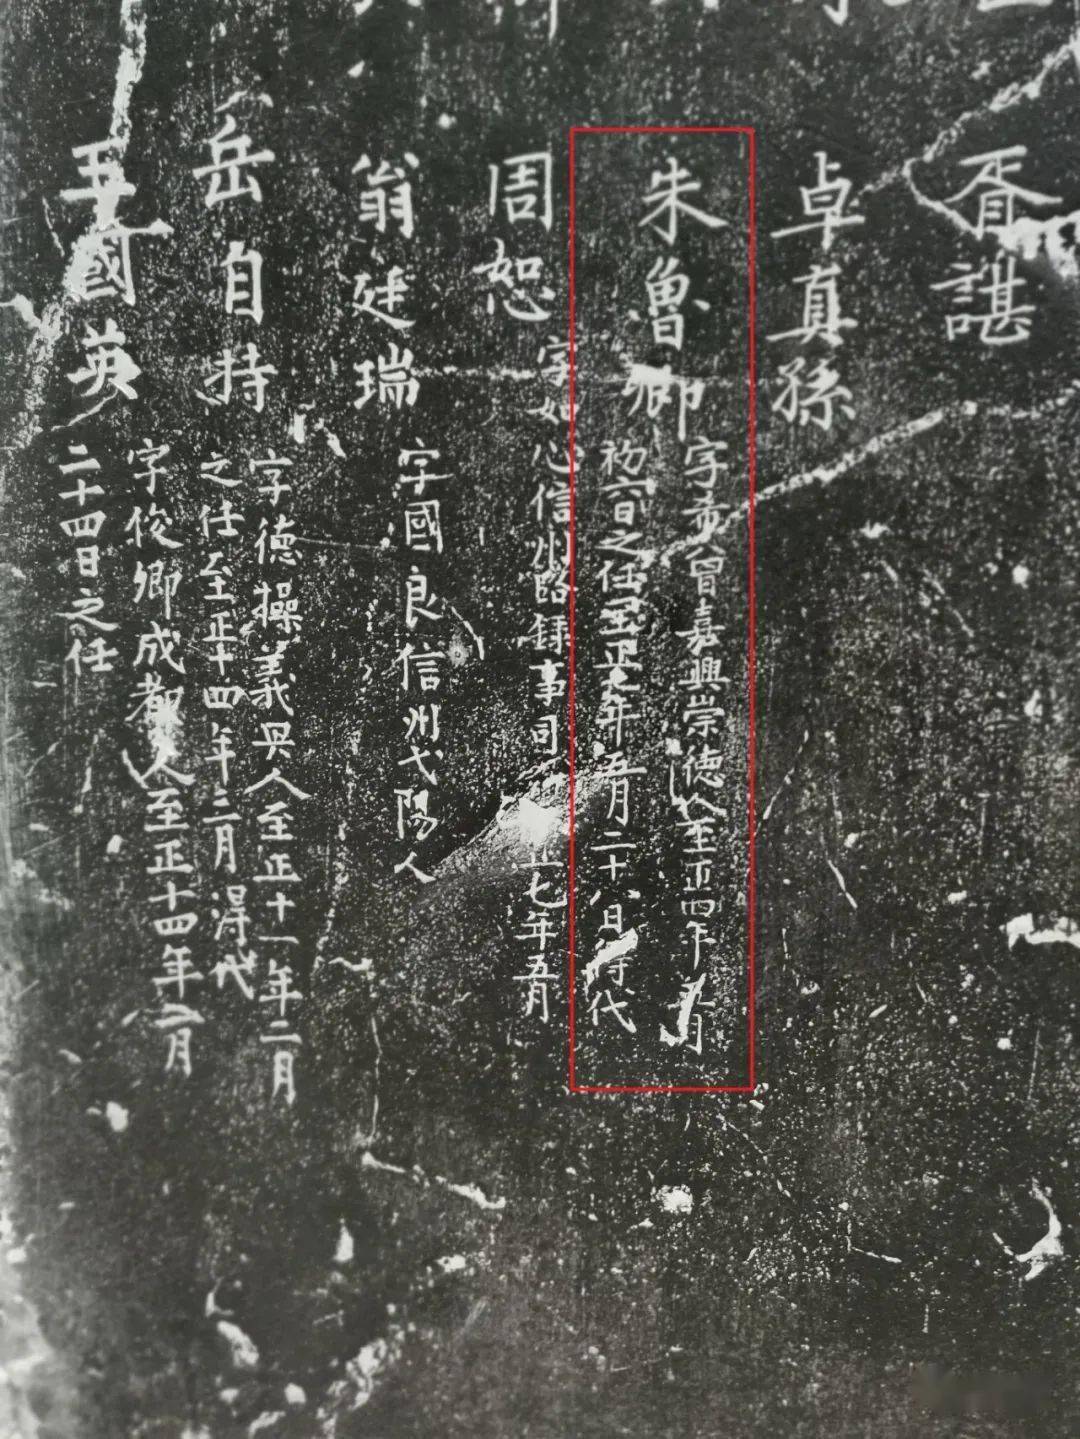 胥諶
卓真孫
朱魯卿
字希曾嘉興崇德人至正四年 月
初六日之任至正七年五月二十八日得代
周恕
字如心信州路錄事司 正七年五月
翁廷瑞
字國良信州弋陽人
岳自持
字德操義興人至正十一年二月
之任至正十四年二月得代
王國英
字俊卿成都人至正十四年二月
二十四日之任